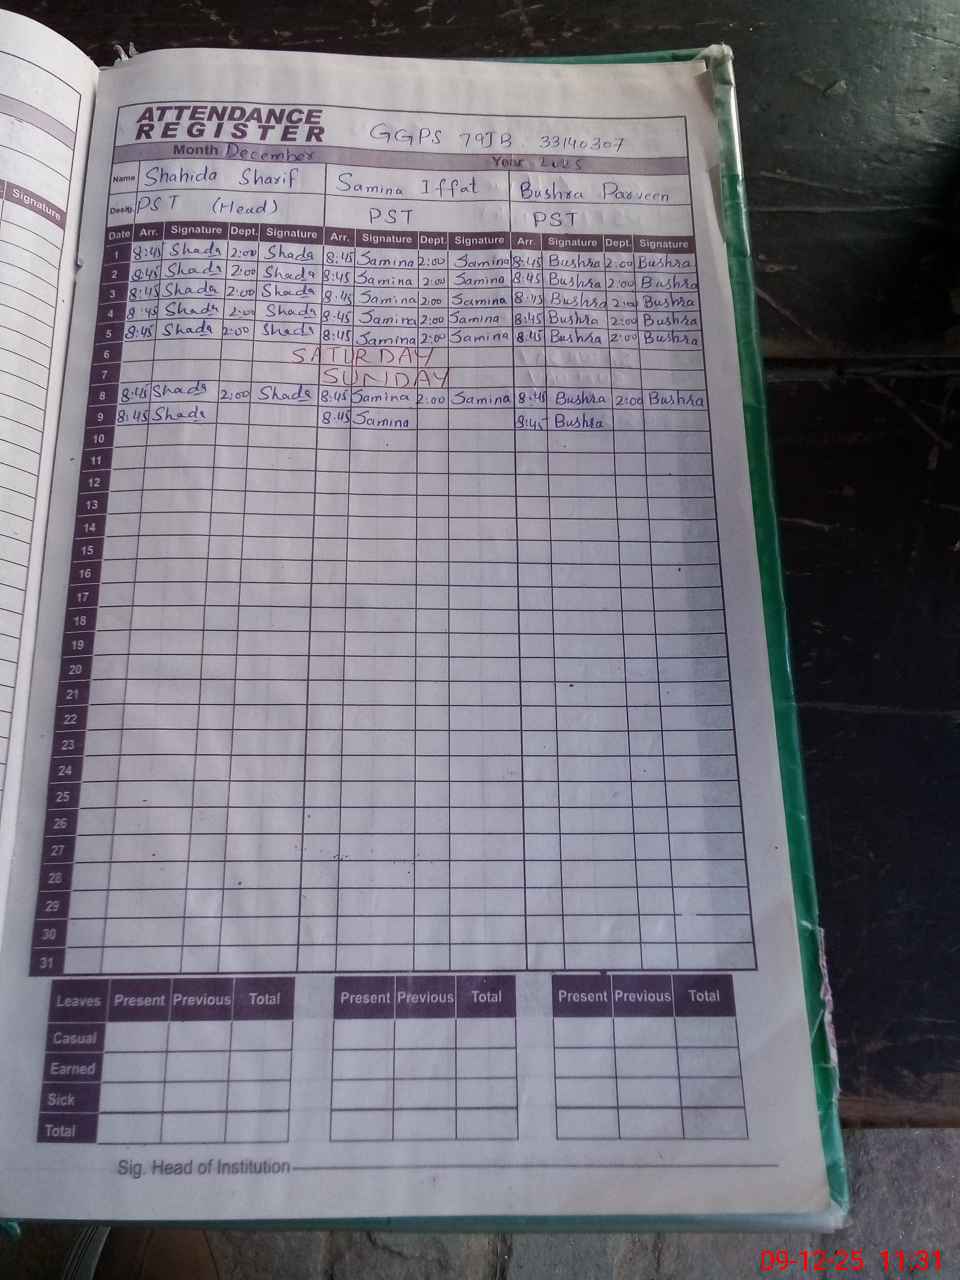 Signature
ATTENDANCE
REGISTER
GGPS 79JB 33140307
Month December Year 2025
Name Shahida Sharif Samina Iffat Bushra Parveen
Desig. PST (Head) PST PST
Date Arr. Signature Dept. Signature Arr. Signature Dept. Signature Arr. Signature Dept. Signature
1 8:45 Shada 2:00 Shada 8:45 Samina 2:00 Samina 8:45 Bushra 2:00 Bushra
2 8:45 Shada 2:00 Shada 8:45 Samina 2:00 Samina 8:45 Bushra 2:00 Bushra
3 8:45 Shada 2:00 Shada 8:45 Samina 2:00 Samina 8:45 Bushra 2:00 Bushra
4 8:45 Shada 2:00 Shada 8:45 Samina 2:00 Samina 8:45 Bushra 2:00 Bushra
5 8:45 Shada 2:00 Shada 8:45 Samina 2:00 Samina 8:45 Bushra 2:00 Bushra
6 SATURDAY
7 SUNDAY
8 8:45 Shada 2:00 Shada 8:45 Samina 2:00 Samina 8:45 Bushra 2:00 Bushra
9 8:45 Shada 8:45 Samina 8:45 Bushra
10
11
12
13
14
15
16
17
18
19
20
21
22
23
24
25
26
27
28
29
30
31
Leaves Present Previous Total Present Previous Total Present Previous Total
Casual
Earned
Sick
Total
Sig. Head of Institution
09-12-25 11:31